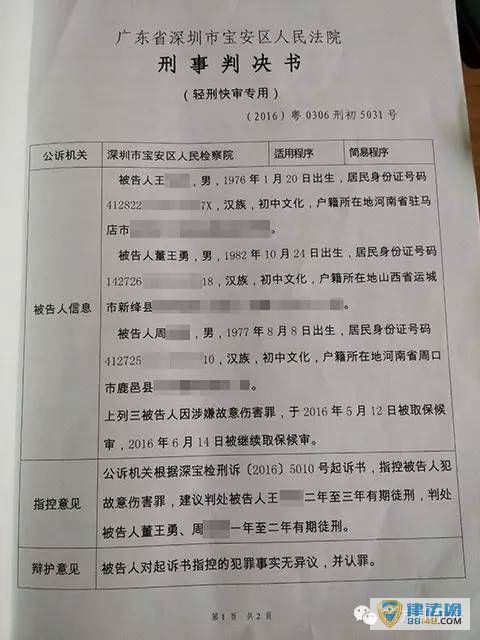 广东省深圳市宝安区人民法院
刑事判决书
（轻刑快审专用）
（2016）粤0306刑初5031号
公诉机关 深圳市宝安区人民检察院 适用程序 简易程序
被告人信息
被告人王 ，男，1976年1月20日出生，居民身份证号码
412822 7X，汉族，初中文化，户籍所在地河南省驻马
店市 。
被告人董王勇，男，1982年10月24日出生，居民身份证号码
142726 18，汉族，初中文化，户籍所在地山西省运城
市新绛县
被告人周 ，男，1977年8月8日出生，居民身份证号码
412725 10，汉族，初中文化，户籍所在地河南省周口
市鹿邑县 。
上列三被告人因涉嫌故意伤害罪，于2016年5月12日被取保候
审，2016年6月14日被继续取保候审。
指控意见
公诉机关根据深宝检刑诉〔2016〕5010号起诉书，指控被告人犯
故意伤害罪，建议判处被告人王 二年至三年有期徒刑，判处
被告人董王勇、周 一年至二年有期徒刑。
辩护意见 被告人对起诉书指控的犯罪事实无异议，并认罪。
第1页 共2页
律法网
88148.com